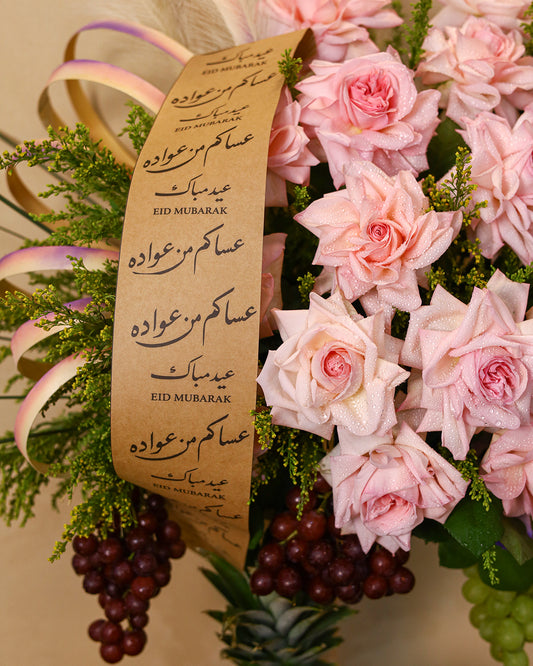 عيد مبارك
EID MUBARAK
عساكم من عواده
عيد مبارك
EID MUBARAK
عساكم من عواده
عيد مبارك
EID MUBARAK
عساكم من عواده
عساكم من عواده
عيد مبارك
EID MUBARAK
عساكم من عواده
عيد مبارك
EID MUBARAK
عساكم من عواده